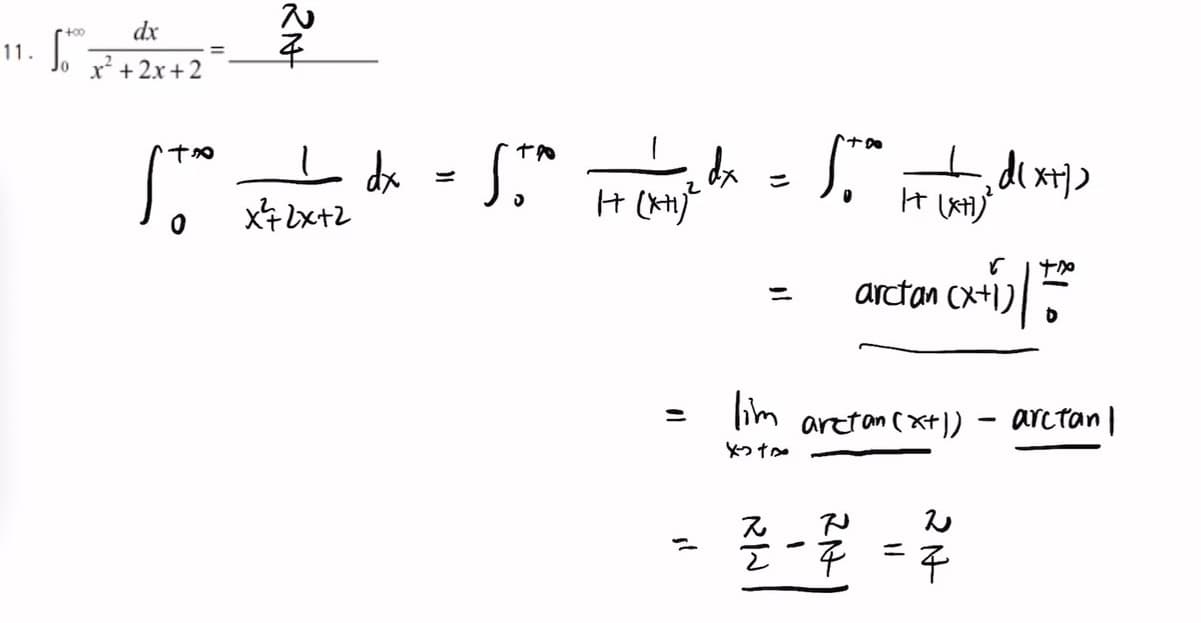 11. ∫₀^{+∞} dx/(x² + 2x + 2) = π/4
∫₀^{+∞} 1/(x²+2x+2) dx = ∫₀^{+∞} 1/(1+(x+1)²) dx = ∫₀^{+∞} 1/(1+(x+1)²) d(x+1)
= arctan(x+1) |₀^{+∞}
= lim_{x→+∞} arctan(x+1) - arctan1
= π/2 - π/4 = π/4